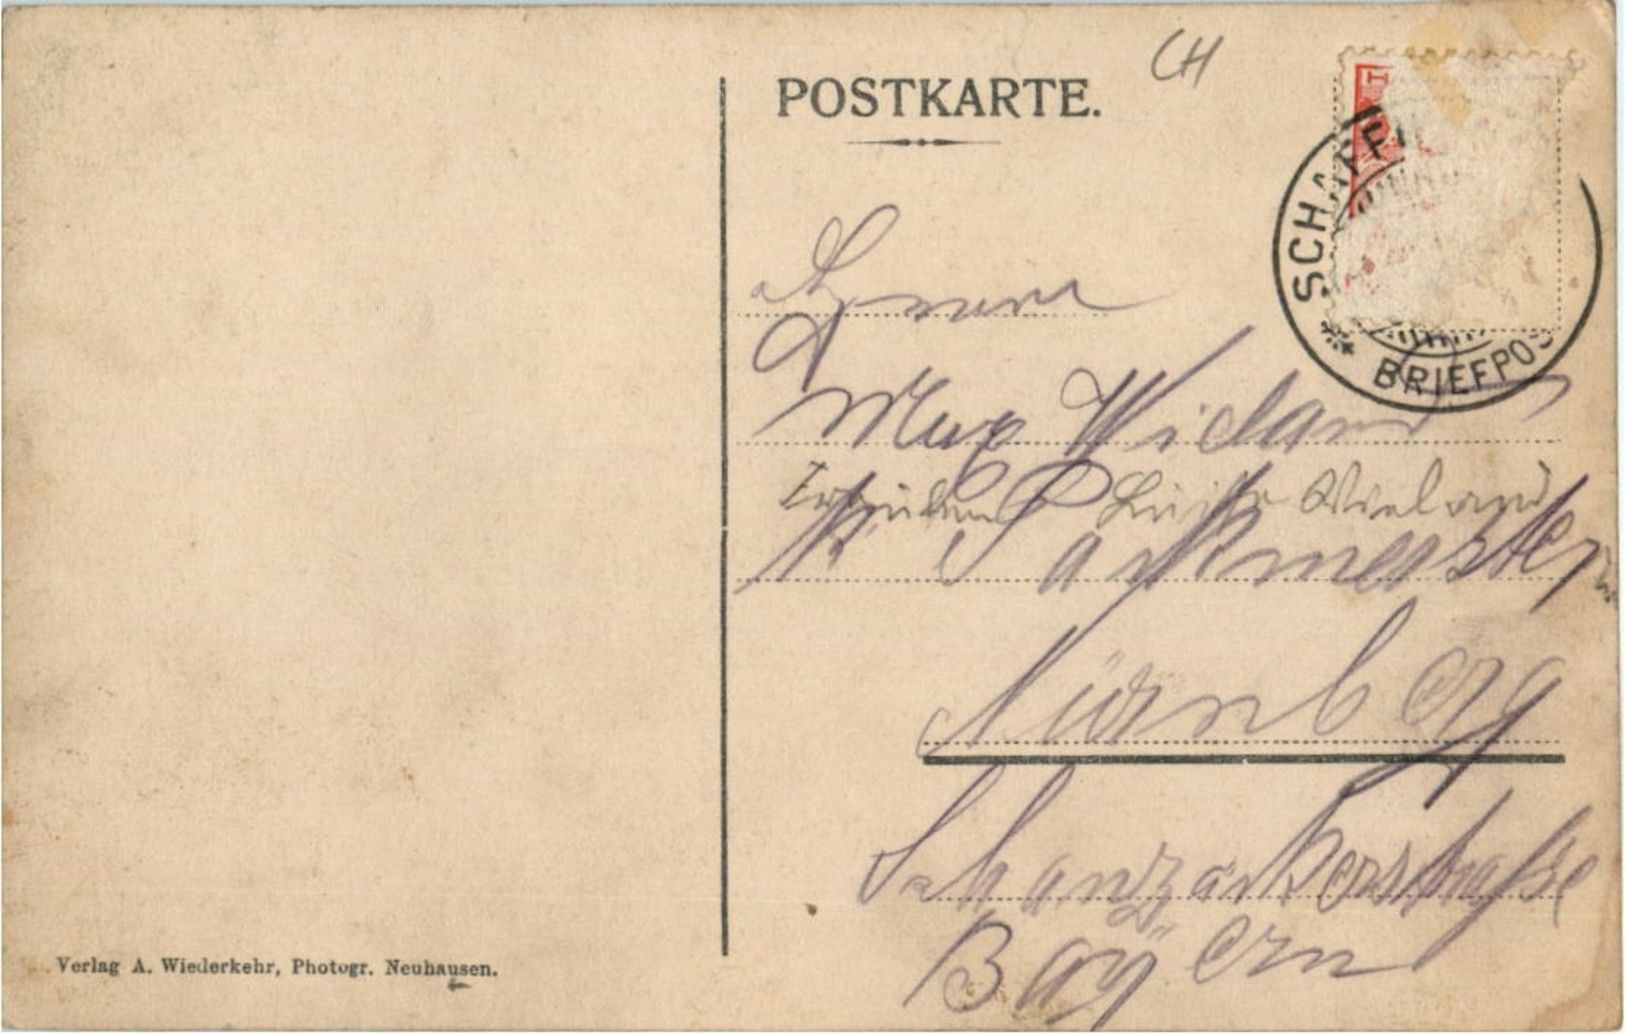 CH
POSTKARTE.
SCHAFFH
BRIEFPOS
Herrn
Max Wieland
Luise Wieland
K. Packmeister
Nürnberg
Schanzäckerstraße
Bayern
Verlag A. Wiederkehr, Photogr. Neuhausen.